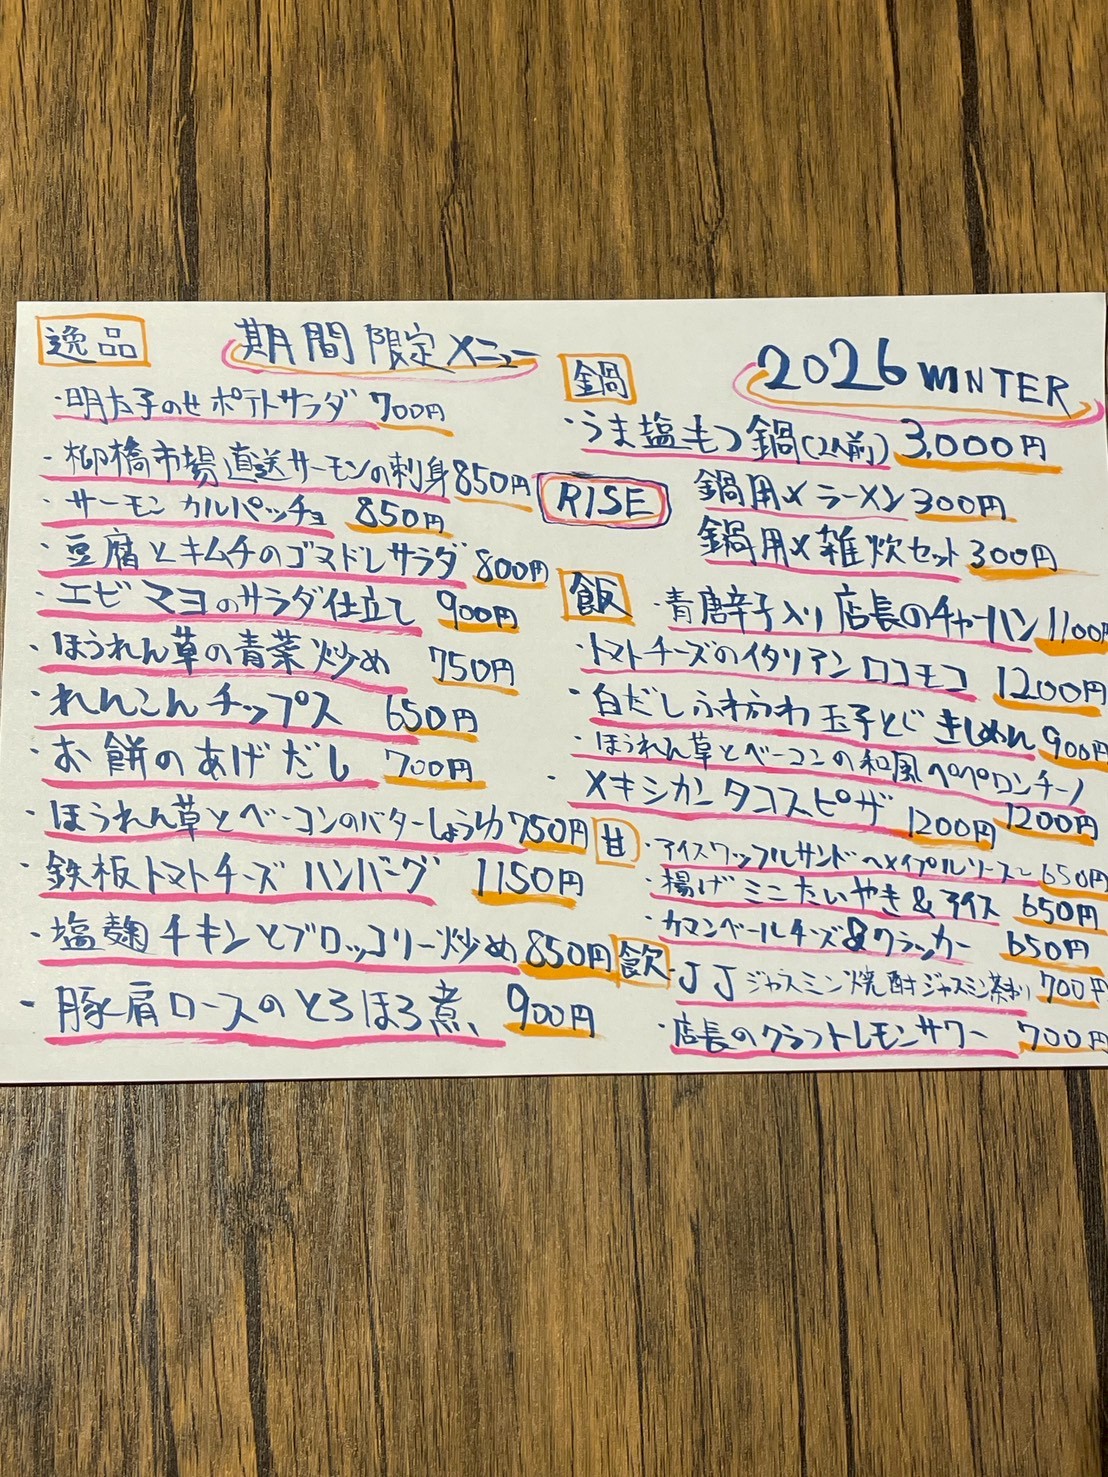 逸品
期間限定メニュー
・明太子のせポテトサラダ 700円
・柳橋市場直送サーモンの刺身 850円
・サーモンカルパッチョ 850円
・豆腐とキムチのゴマドレサラダ 800円
・エビマヨのサラダ仕立て 900円
・ほうれん草の青菜炒め 750円
・れんこんチップス 650円
・お餅のあげだし 700円
・ほうれん草とベーコンのバターしょうゆ 750円
・鉄板トマトチーズハンバーグ 1150円
・塩麹チキンとブロッコリー炒め 850円
・豚肩ロースのとろほろ煮 900円
2026 WINTER
RISE
鍋
・うま塩もつ鍋(2人前) 3,000円
鍋用〆ラーメン 300円
鍋用〆雑炊セット 300円
飯
・青唐辛子入り店長のチャーハン 1100円
・トマトチーズのイタリアンロコモコ 1200円
・白だしふわふわ玉子とじきしめん 900円
・ほうれん草とベーコンの和風ペペロンチーノ 1200円
・メキシカンタコスピザ 1200円
甘
・アイスワッフルサンド〜メイプルソース〜 650円
・揚げミニたいやき&アイス 650円
・カマンベールチーズ&クラッカー 650円
飲
・JJ ジャスミン焼酎ジャスミン茶割り 700円
・店長のクラフトレモンサワー 700円